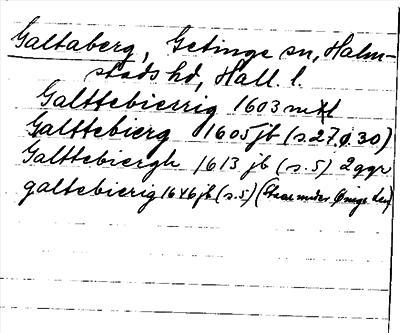 Galtaberg, Getinge sn, Halm-
stads hd, Hall. l.
Galttebierrig 1603 mtl
Galttebierg 1605 jb (s. 27 o. 30)
Galttebiergh 1613 jb (s. 5) 2 ggr
galtebierig 1646 jb (s. 5) (Staar under Öninge Len)